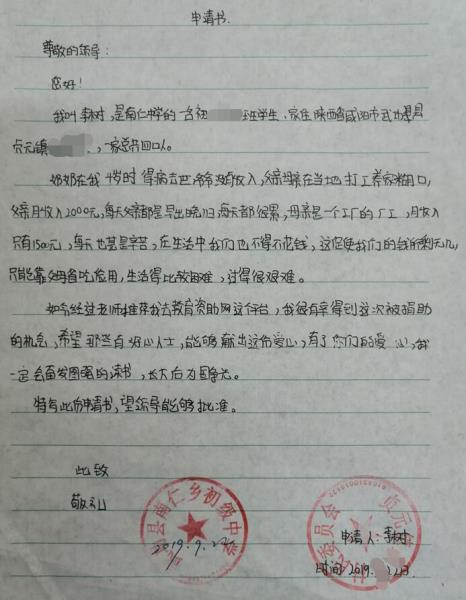 申请书
尊敬的领导:
您好!
我叫李树,是南仁中学的一名初 班学生,家住陕西省咸阳市武功县
贞元镇 ,一家总共四口人。
奶奶在我4岁时得病去世,爷爷没有收入,父亲母亲在当地打工养家糊口,
父亲月收入2000元,每天父亲都是早出晚归,每天都很累,母亲是一个工厂的厂工,月收入
只有1500元,每天也甚是辛苦,在生活中我们也不得不花钱,这促使我们的钱所剩无几,
只能靠父母省吃俭用,生活得比较困难,过得很艰难。
如今经过老师推荐我去教育资助网这个平台,我很有幸得到这次被捐助
的机会,希望那些有好心人士,能够献出这份爱心,有了您们的爱心,我
一定会奋发图强的读书,长大后为国争光。
特写此份申请书,望领导能够批准。
此致
敬礼
县南仁乡初级中学
2019.9.22
贞元镇
委员会
申请人:李树
时间2019. 22日